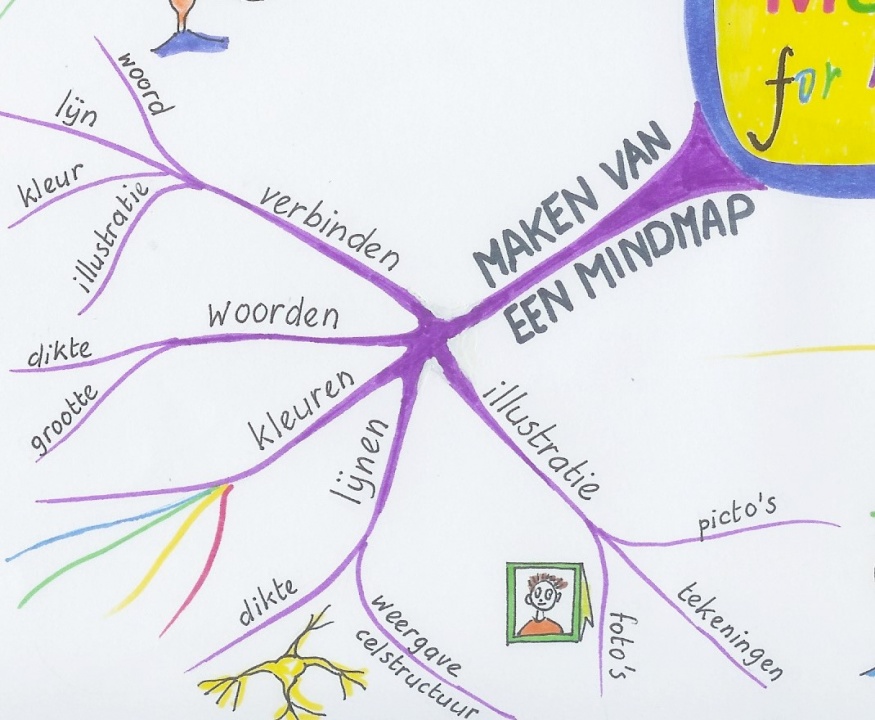 for
MAKEN VAN
EEN MINDMAP
verbinden
woord
lijn
kleur
illustratie
woorden
dikte
grootte
kleuren
lijnen
dikte
weergave
celstructuur
illustratie
foto's
tekeningen
picto's